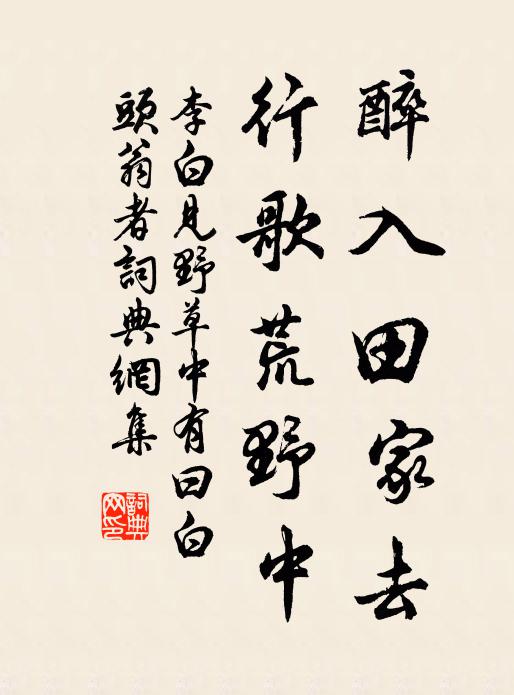 醉入田家去
行歌荒野中
李白見野草中有曰白
頭翁者詞典網集
詞典
网印